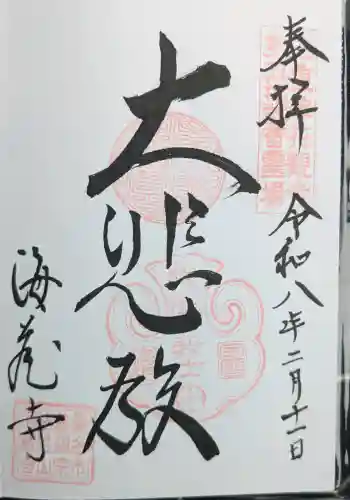 奉拝
令和八年二月十一日
大悲殿
海蔵寺